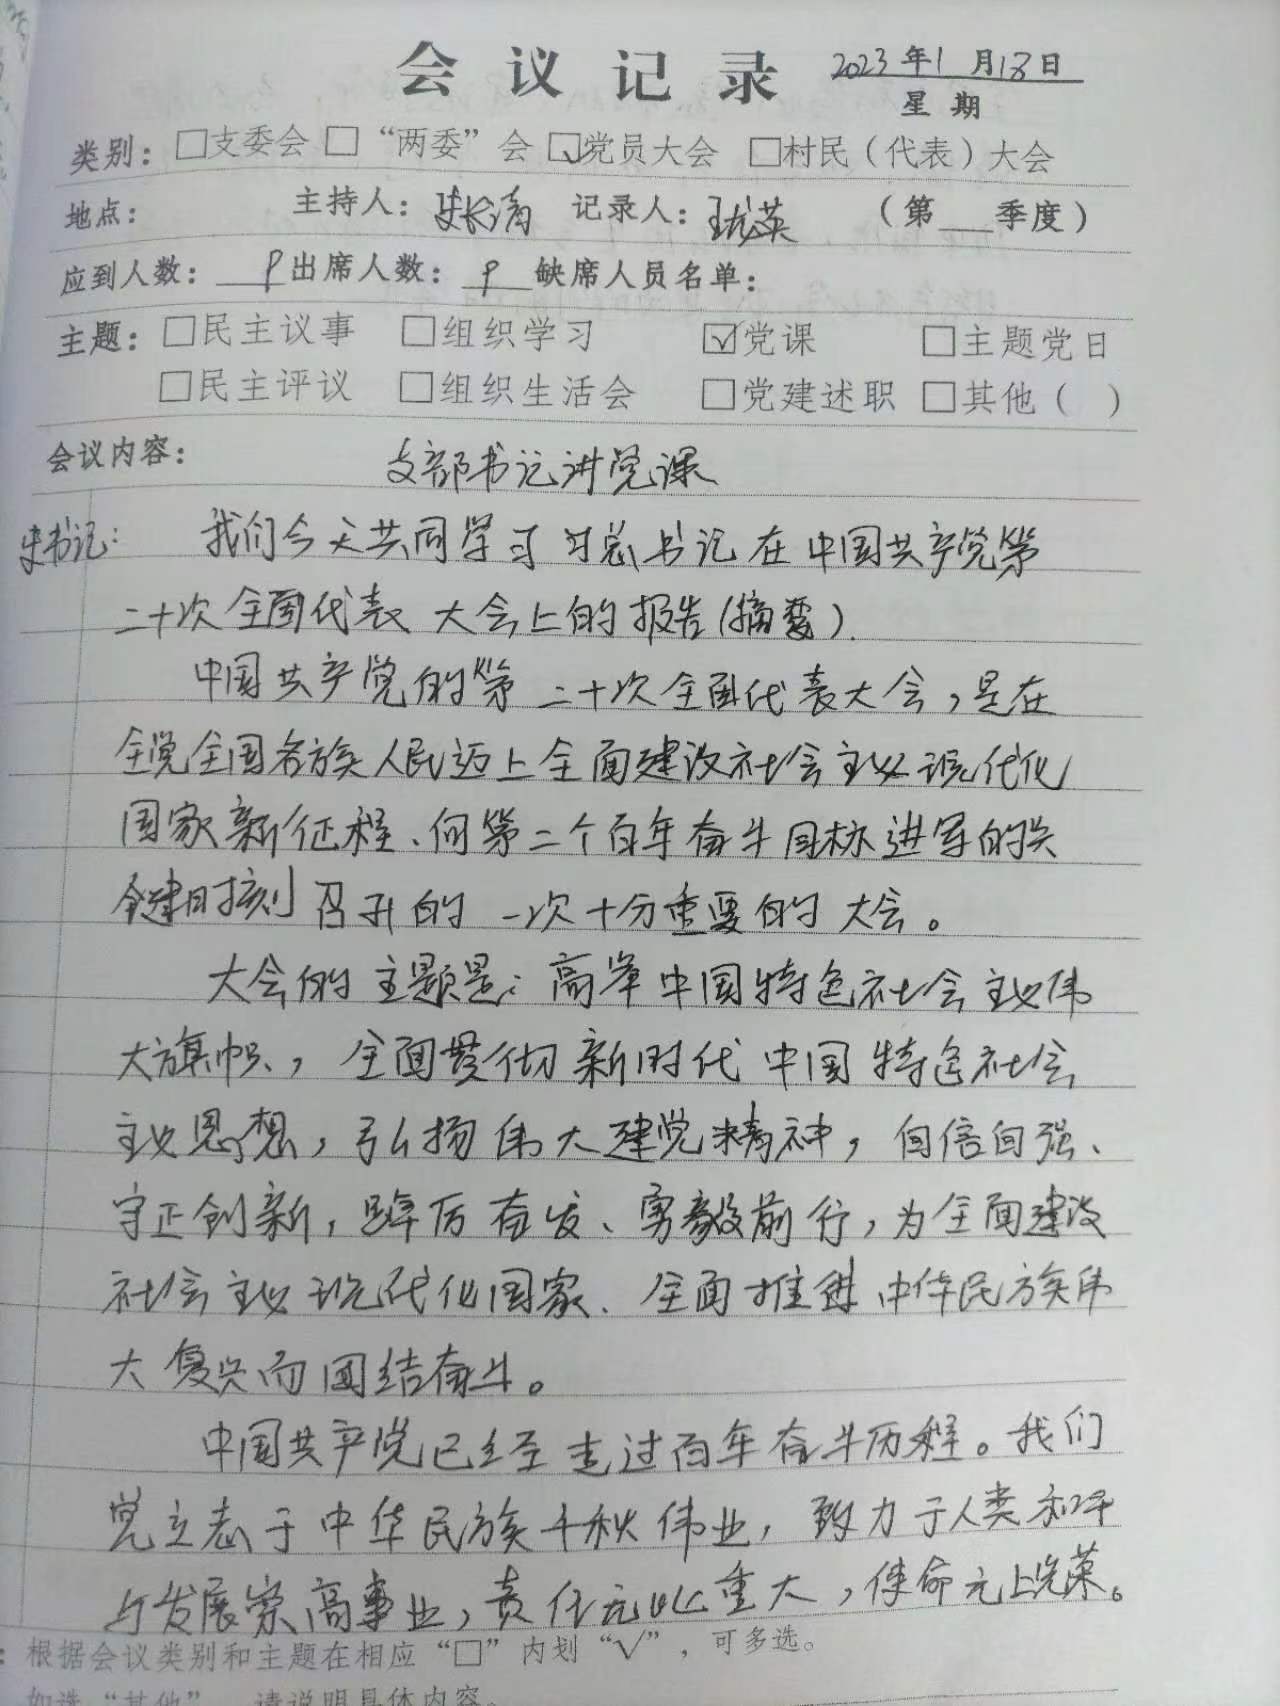 会议记录 2023年1月18日
星期
类别：□支委会 □“两委”会 ☑党员大会 □村民（代表）大会
地点： 主持人：史长涛 记录人：王龙英 （第___季度）
应到人数：9 出席人数：9 缺席人员名单：
主题：□民主议事 □组织学习 ☑党课 □主题党日
□民主评议 □组织生活会 □党建述职 □其他（ ）
会议内容： 支部书记讲党课
史书记： 我们今天共同学习习总书记在中国共产党第
二十次全国代表大会上的报告(摘要).
中国共产党的第二十次全国代表大会，是在
全党全国各族人民迈上全面建设社会主义现代化
国家新征程、向第二个百年奋斗目标进军的关
键时刻召开的一次十分重要的大会。
大会的主题是：高举中国特色社会主义伟
大旗帜，全面贯彻新时代中国特色社会
主义思想，弘扬伟大建党精神，自信自强、
守正创新，踔厉奋发、勇毅前行，为全面建设
社会主义现代化国家、全面推进中华民族伟
大复兴而团结奋斗。
中国共产党已经走过百年奋斗历程。我们
党立志于中华民族千秋伟业，致力于人类和平
与发展崇高事业，责任无比重大，使命无上光荣。
：根据会议类别和主题在相应“□”内划“√”，可多选。
如选“其他”，请说明具体内容。